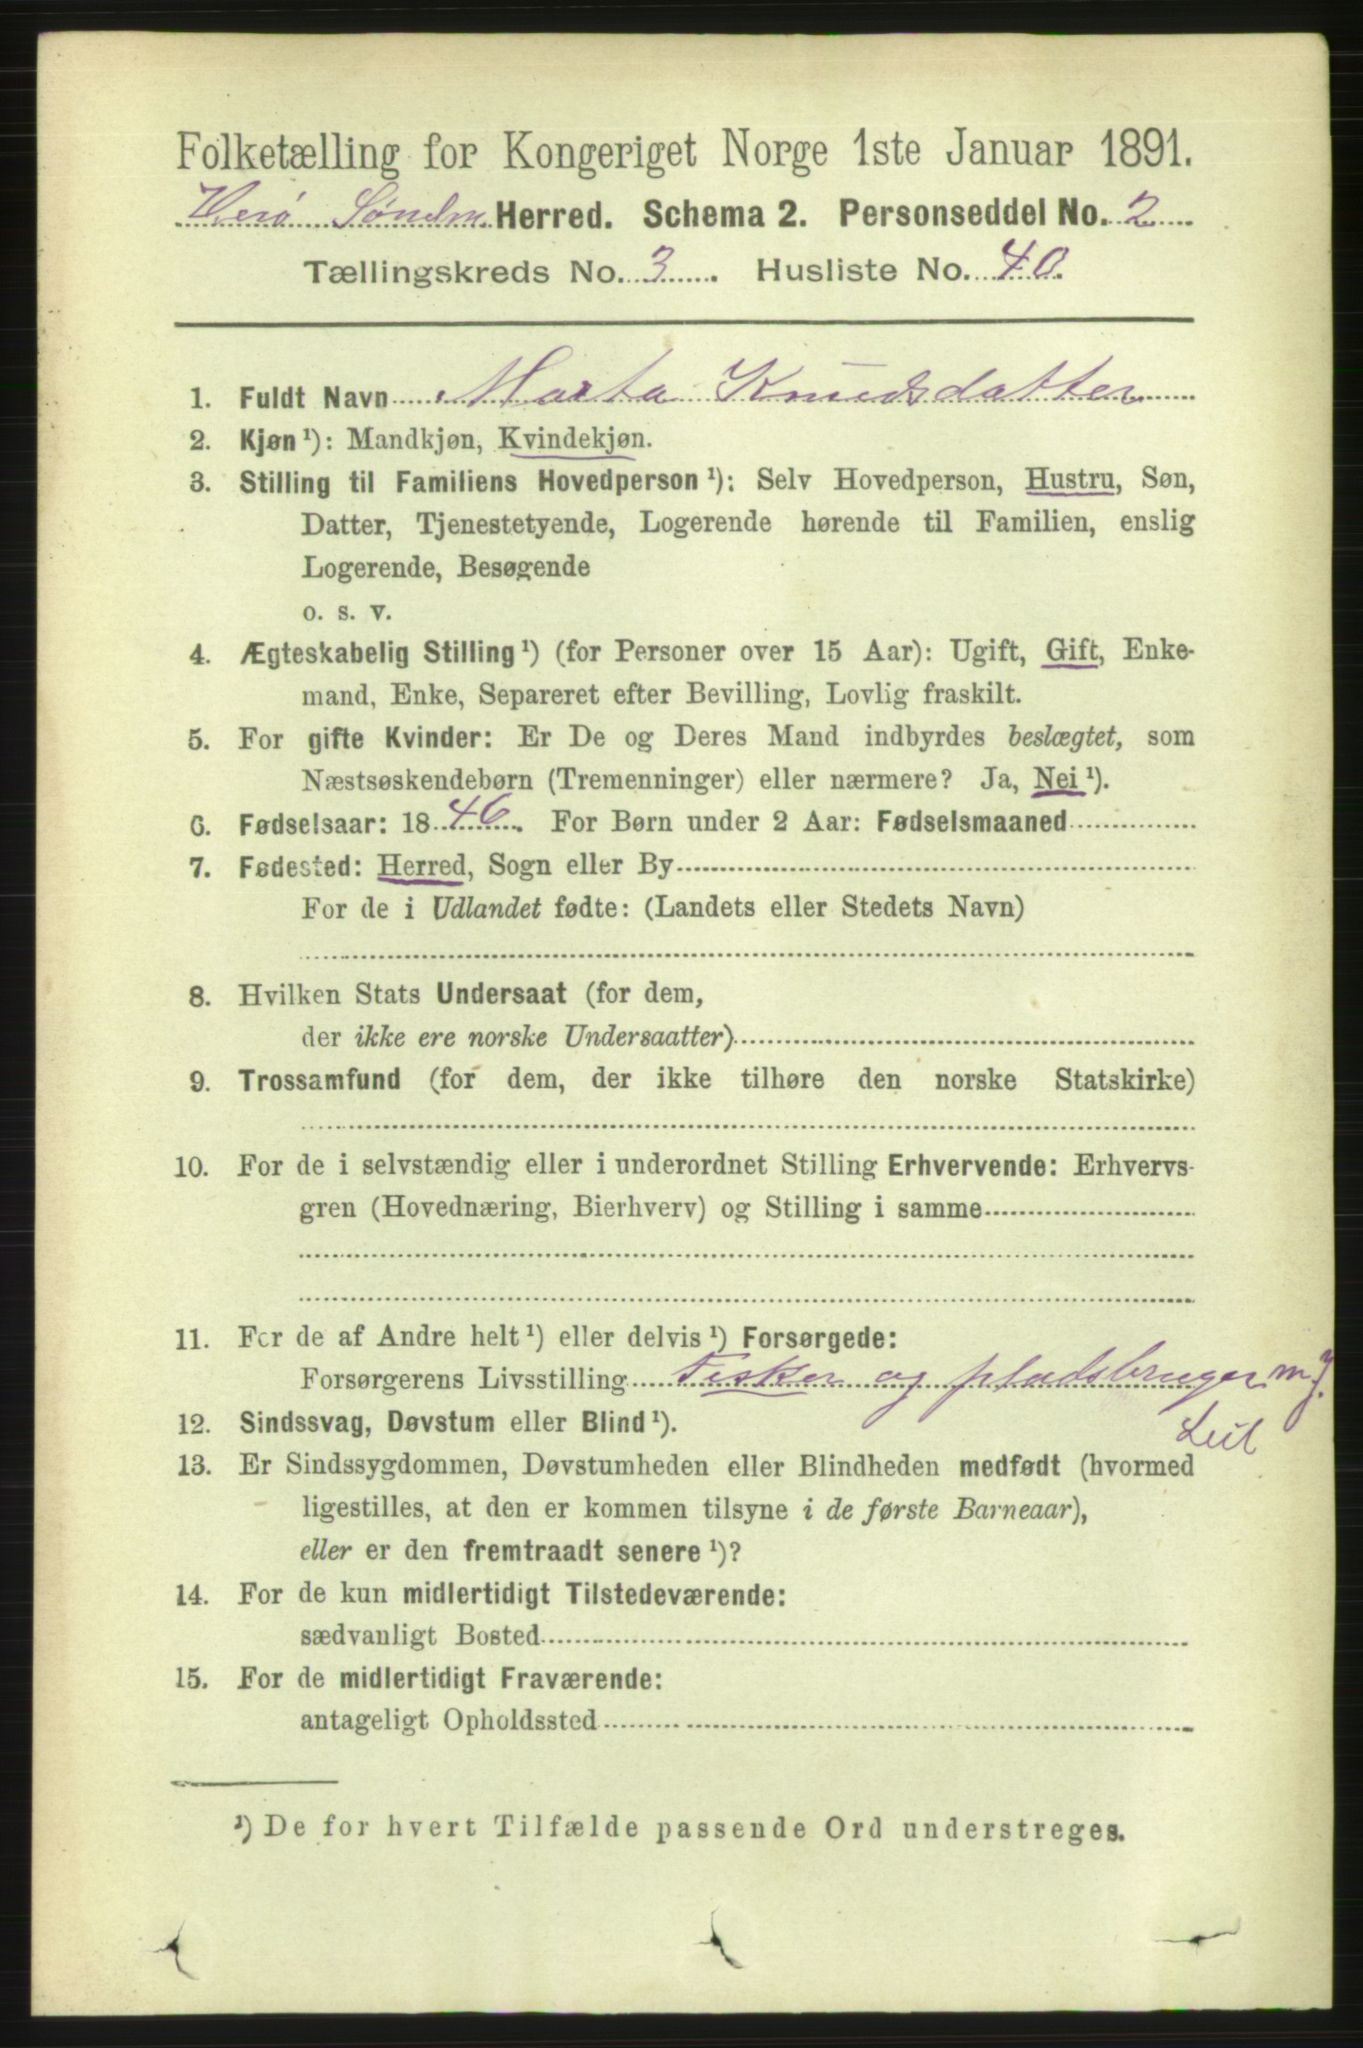 Folketælling for Kongeriget Norge 1ste Januar 1891.
Herö Søndm. Herred. Schema 2. Personseddel No. 2
Tællingskreds No. 3. Husliste No. 40.
1. Fuldt Navn Marta Knudsdatter
2. Kjøn ¹): Mandkjøn, Kvindekjøn.
3. Stilling til Familiens Hovedperson ¹): Selv Hovedperson, Hustru, Søn,
Datter, Tjenestetyende, Logerende hørende til Familien, enslig
Logerende, Besøgende
o. s. v.
4. Ægteskabelig Stilling ¹) (for Personer over 15 Aar): Ugift, Gift, Enke-
mand, Enke, Separeret efter Bevilling, Lovlig fraskilt.
5. For gifte Kvinder: Er De og Deres Mand indbyrdes beslægtet, som
Næstsøskendebørn (Tremenninger) eller nærmere? Ja, Nei ¹).
6. Fødselsaar: 1846. For Børn under 2 Aar: Fødselsmaaned
7. Fødested: Herred, Sogn eller By
For de i Udlandet fødte: (Landets eller Stedets Navn)
8. Hvilken Stats Undersaat (for dem,
der ikke ere norske Undersaatter)
9. Trossamfund (for dem, der ikke tilhøre den norske Statskirke)
10. For de i selvstændig eller i underordnet Stilling Erhvervende: Erhvervs-
gren (Hovednæring, Bierhverv) og Stilling i samme
11. For de af Andre helt ¹) eller delvis ¹) Forsørgede:
Forsørgerens Livsstilling Fisker og pladsbruger m J.
12. Sindssvag, Døvstum eller Blind ¹).
13. Er Sindssygdommen, Døvstumheden eller Blindheden medfødt (hvormed
ligestilles, at den er kommen tilsyne i de første Barneaar),
eller er den fremtraadt senere ¹)?
14. For de kun midlertidigt Tilstedeværende:
sædvanligt Bosted
15. For de midlertidigt Fraværende:
antageligt Opholdssted
¹) De for hvert Tilfælde passende Ord understreges.